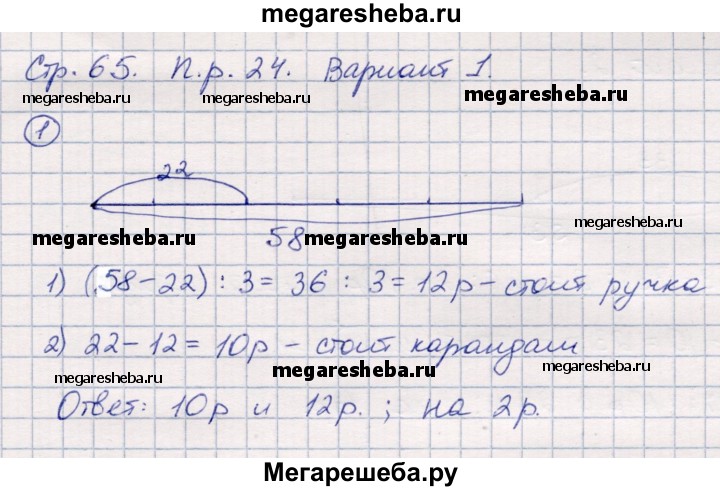 megaresheba.ru
Стр. 65. П.р. 24. Вариант 1.
megaresheba.ru megaresheba.ru megaresheba.ru
1
22
megaresheba.ru
58 megaresheba.ru megaresheba.ru
1) (58-22) : 3 = 36 : 3 = 12р - стоит ручка
2) 22-12 = 10р - стоит карандаш
megaresheba.ru megaresheba.ru megaresheba.ru
Ответ: 10р и 12р. ; на 2р.
Мегарешеба.ру